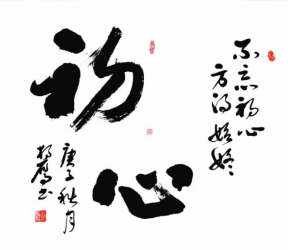 不忘初心
方得始终
初心
庚子秋月